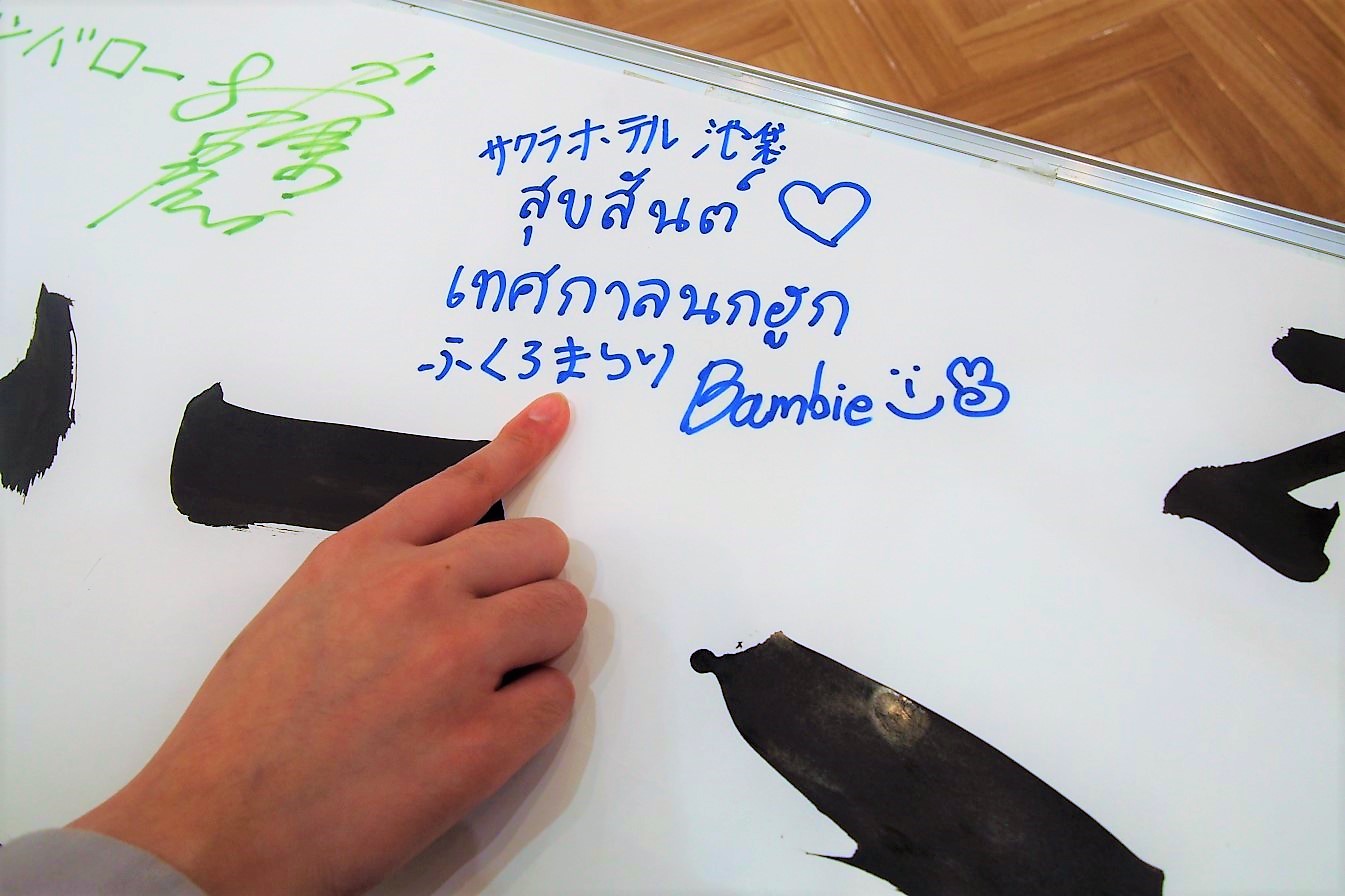 ンバロー
サクラホテル 池袋
สุขสันต์ ♡
เทศกาลนกฮูก
ふくろまつり Bambie